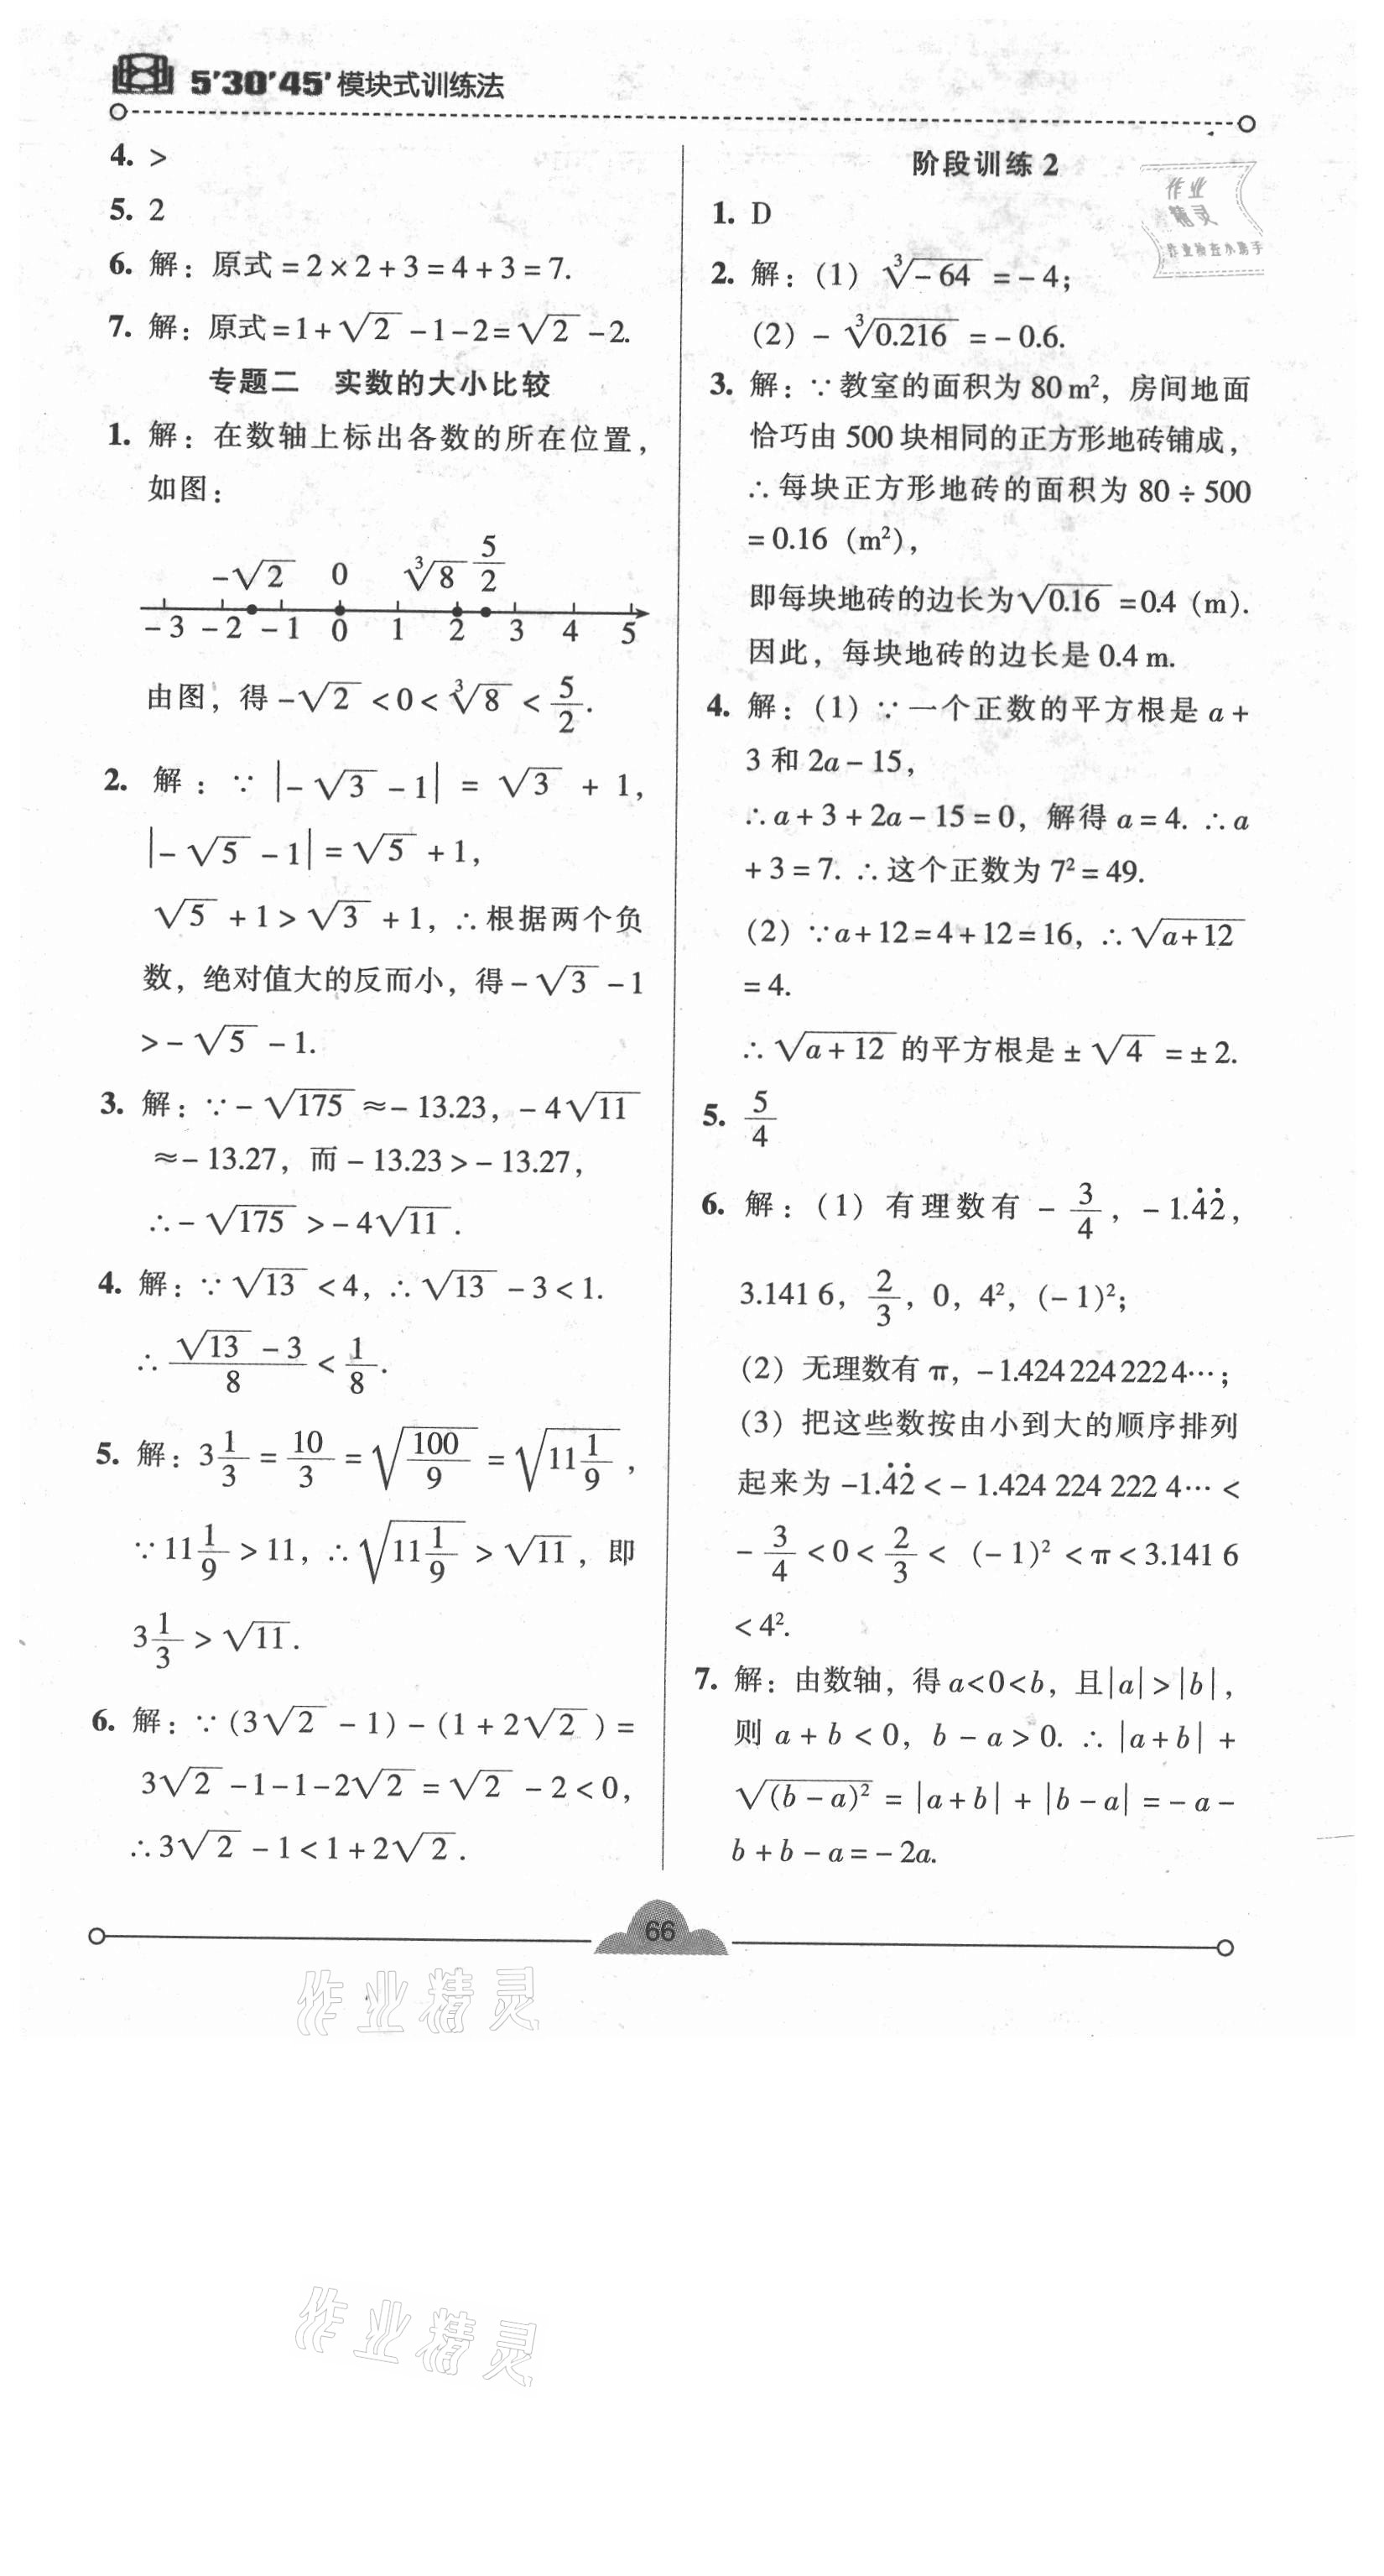 5'30'45'模块式训练法
4. >
5. 2
6. 解：原式=2×2+3=4+3=7.
7. 解：原式=1+√2-1-2=√2-2.
专题二 实数的大小比较
1. 解：在数轴上标出各数的所在位置，
如图：
-√2 0 ∛8 5/2
-3 -2 -1 0 1 2 3 4 5
由图，得-√2<0<∛8<5/2.
2. 解：∵|-√3-1|=√3+1，
|-√5-1|=√5+1，
√5+1>√3+1，∴根据两个负
数，绝对值大的反而小，得-√3-1
>-√5-1.
3. 解：∵-√175≈-13.23，-4√11
≈-13.27，而-13.23>-13.27，
∴-√175>-4√11.
4. 解：∵√13<4，∴√13-3<1.
∴(√13-3)/8<1/8.
5. 解：3 1/3=10/3=√(100/9)=√(11 1/9)，
∵11 1/9>11，∴√(11 1/9)>√11，即
3 1/3>√11.
6. 解：∵(3√2-1)-(1+2√2)=
3√2-1-1-2√2=√2-2<0，
∴3√2-1<1+2√2.
阶段训练2
1. D
2. 解：(1) ∛-64=-4；
(2) -∛0.216=-0.6.
3. 解：∵教室的面积为80 m²，房间地面
恰巧由500块相同的正方形地砖铺成，
∴每块正方形地砖的面积为80÷500
=0.16（m²），
即每块地砖的边长为√0.16=0.4（m）.
因此，每块地砖的边长是0.4 m.
4. 解：(1) ∵一个正数的平方根是a+
3和2a-15，
∴a+3+2a-15=0，解得a=4. ∴a
+3=7. ∴这个正数为7²=49.
(2) ∵a+12=4+12=16，∴√(a+12)
=4.
∴√(a+12)的平方根是±√4=±2.
5. 5/4
6. 解：(1) 有理数有-3/4，-1.4̇2̇，
3.141 6，2/3，0，4²，(-1)²；
(2) 无理数有π，-1.424 224 222 4…；
(3) 把这些数按由小到大的顺序排列
起来为-1.4̇2̇<-1.424 224 222 4…<
-3/4<0<2/3<(-1)²<π<3.141 6
<4².
7. 解：由数轴，得a<0<b，且|a|>|b|，
则a+b<0，b-a>0. ∴|a+b|+
√(b-a)²=|a+b|+|b-a|=-a-
b+b-a=-2a.
作业
精灵
作业检查小助手
66
作业精灵
作业精灵